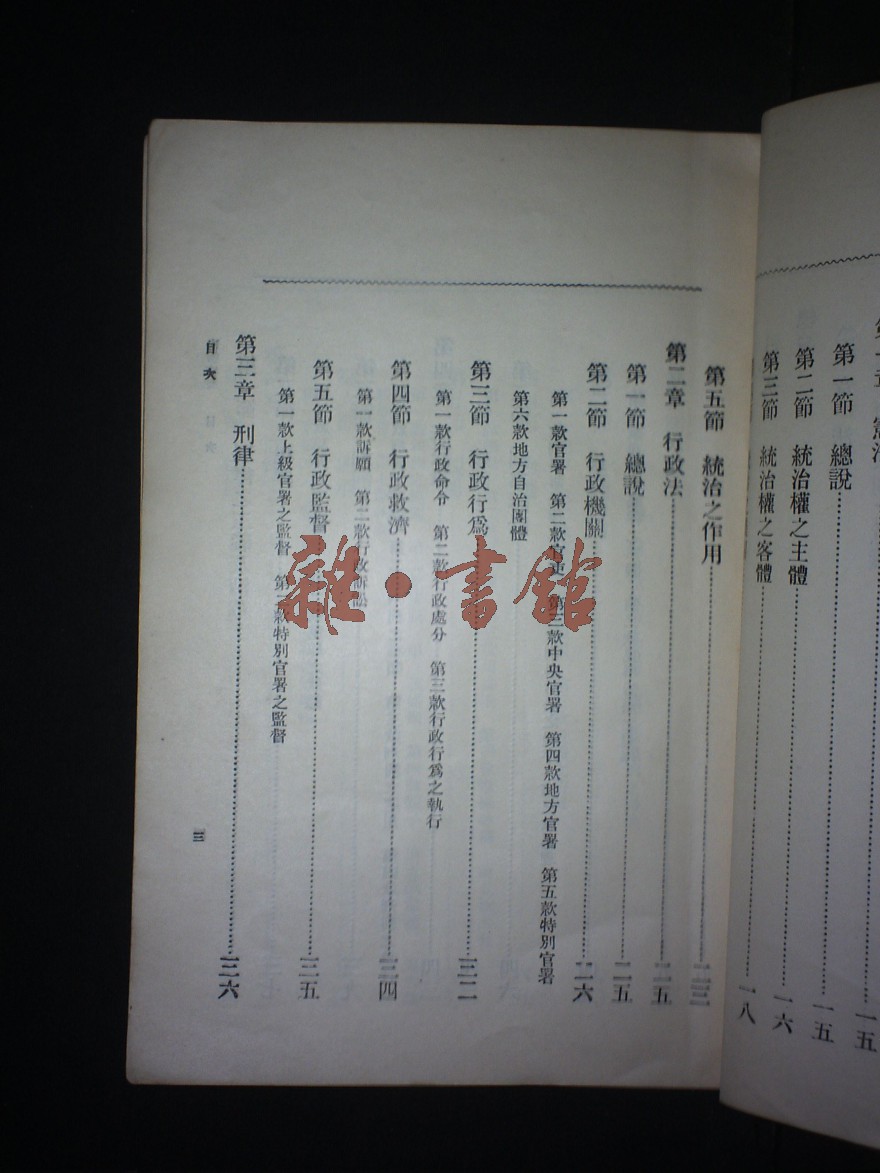 第一節 總說 一五
第二節 統治權之主體 一六
第三節 統治權之客體 一八
第五節 統治之作用 二三
第二章 行政法 二五
第一節 總說 二五
第二節 行政機關 二六
第一款官署 第二款官吏 第三款中央官署 第四款地方官署 第五款特別官署
第六款地方自治團體
第三節 行政行爲 三二
第一款行政命令 第二款行政處分 第三款行政行爲之執行
第四節 行政救濟 三四
第一款訴願 第二款行政訴訟
第五節 行政監督 三五
第一款上級官署之監督 第二款特別官署之監督
第三章 刑律 三六
目次
三
雜·書館